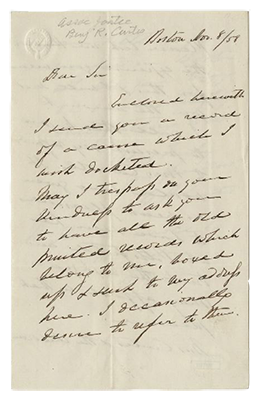 Assoc Justice
Benj. R. Curtis
Boston Nov. 8/58
Dear Sir
Enclosed herewith
I send you a record
of a cause which I
wish docketed.
May I trespass on your
kindness to ask you
to have all the old
printed records which
belong to me, boxed
up & sent to my address
here. I occasionally
desire to refer to them.